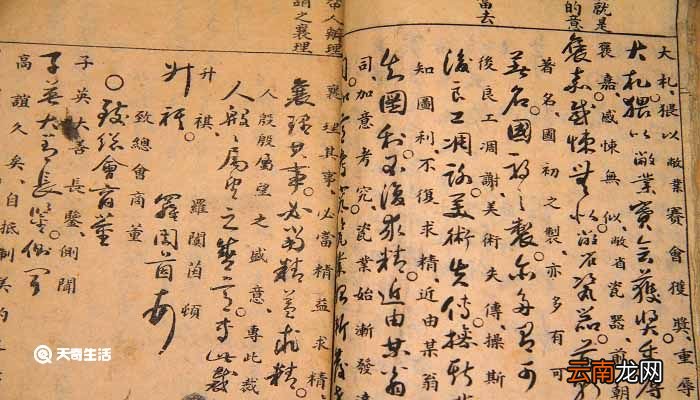 就是
的意
當去
大札猥以敝業賽會獲獎重辱
大札猥以敝業賽會獲獎重辱
褒嘉感悚無似敝省瓷器前朝
褒嘉感悚無似敝省瓷器前朝
著名國初之製亦多有可
著名國初之製亦多有可
後良工凋謝美術失傳操斯
後良工凋謝美術失傳操斯
知圖利不復求精近由某翁
知圖利不復求精近由某翁
司加意考究瓷業始漸發達
帝人辦理
謂之襄理
襄理其事必當精益求精
襄理其事必當精益求精
人殷殷屬望之盛意專此裁
人殷殷屬望之盛意專此裁
升祺 羅閬茵頓
升祺
致總會商董
致總會商董
子英大善長鑒側聞
子英大善長鑒側聞
高誼久矣自抵制美約
天奇生活
云南龙网